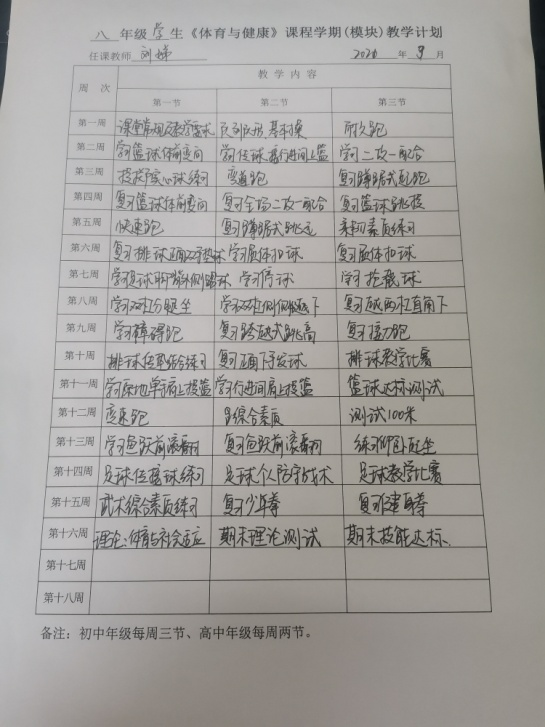 八 年级 学 生《体育与健康》课程学期(模块)教学计划
任课教师 刘 年 9 月
周 次 教 学 内 容
第一节 第二节 第三节
第一周 课堂常规及教学要求 队列队形 基本操 耐久跑
第二周 学习篮球体前变向 学习传球接行进间上篮 学习二攻一配合
第三周 投掷实心球练习 弯道跑 复习蹲踞式起跑
第四周 复习篮球体前变向 复习全场二攻一配合 复习篮球跳投
第五周 快速跑 复习蹲踞式跳远 柔韧素质练习
第六周 复习排球正面双手垫球 学习原体扣球 复习原体扣球
第七周 学习足球脚内侧踢球 学习停球 学习抢截球
第八周 学习双杠分腿坐 学习双杠侧 下 复习 两杠直角下
第九周 学习障碍跑 复习跨越式跳高 复习接力跑
第十周 排球传垫结合练习 复习正面下手发球 排球教学比赛
第十一周 学习原地单手肩上投篮 学习行进间肩上投篮 篮球达标测试
第十二周 变速跑 综合素质 测试100米
第十三周 学习鱼跃前滚翻 复习鱼跃前滚翻 练习仰卧起坐
第十四周 足球传接球练习 足球个人防守战术 足球教学比赛
第十五周 武术综合素质练习 复习少年拳 复习健身拳
第十六周 理论:体育与社会适应 期末理论测试 期末技能达标.
第十七周
第十八周
备注:初中年级每周三节、高中年级每周两节。